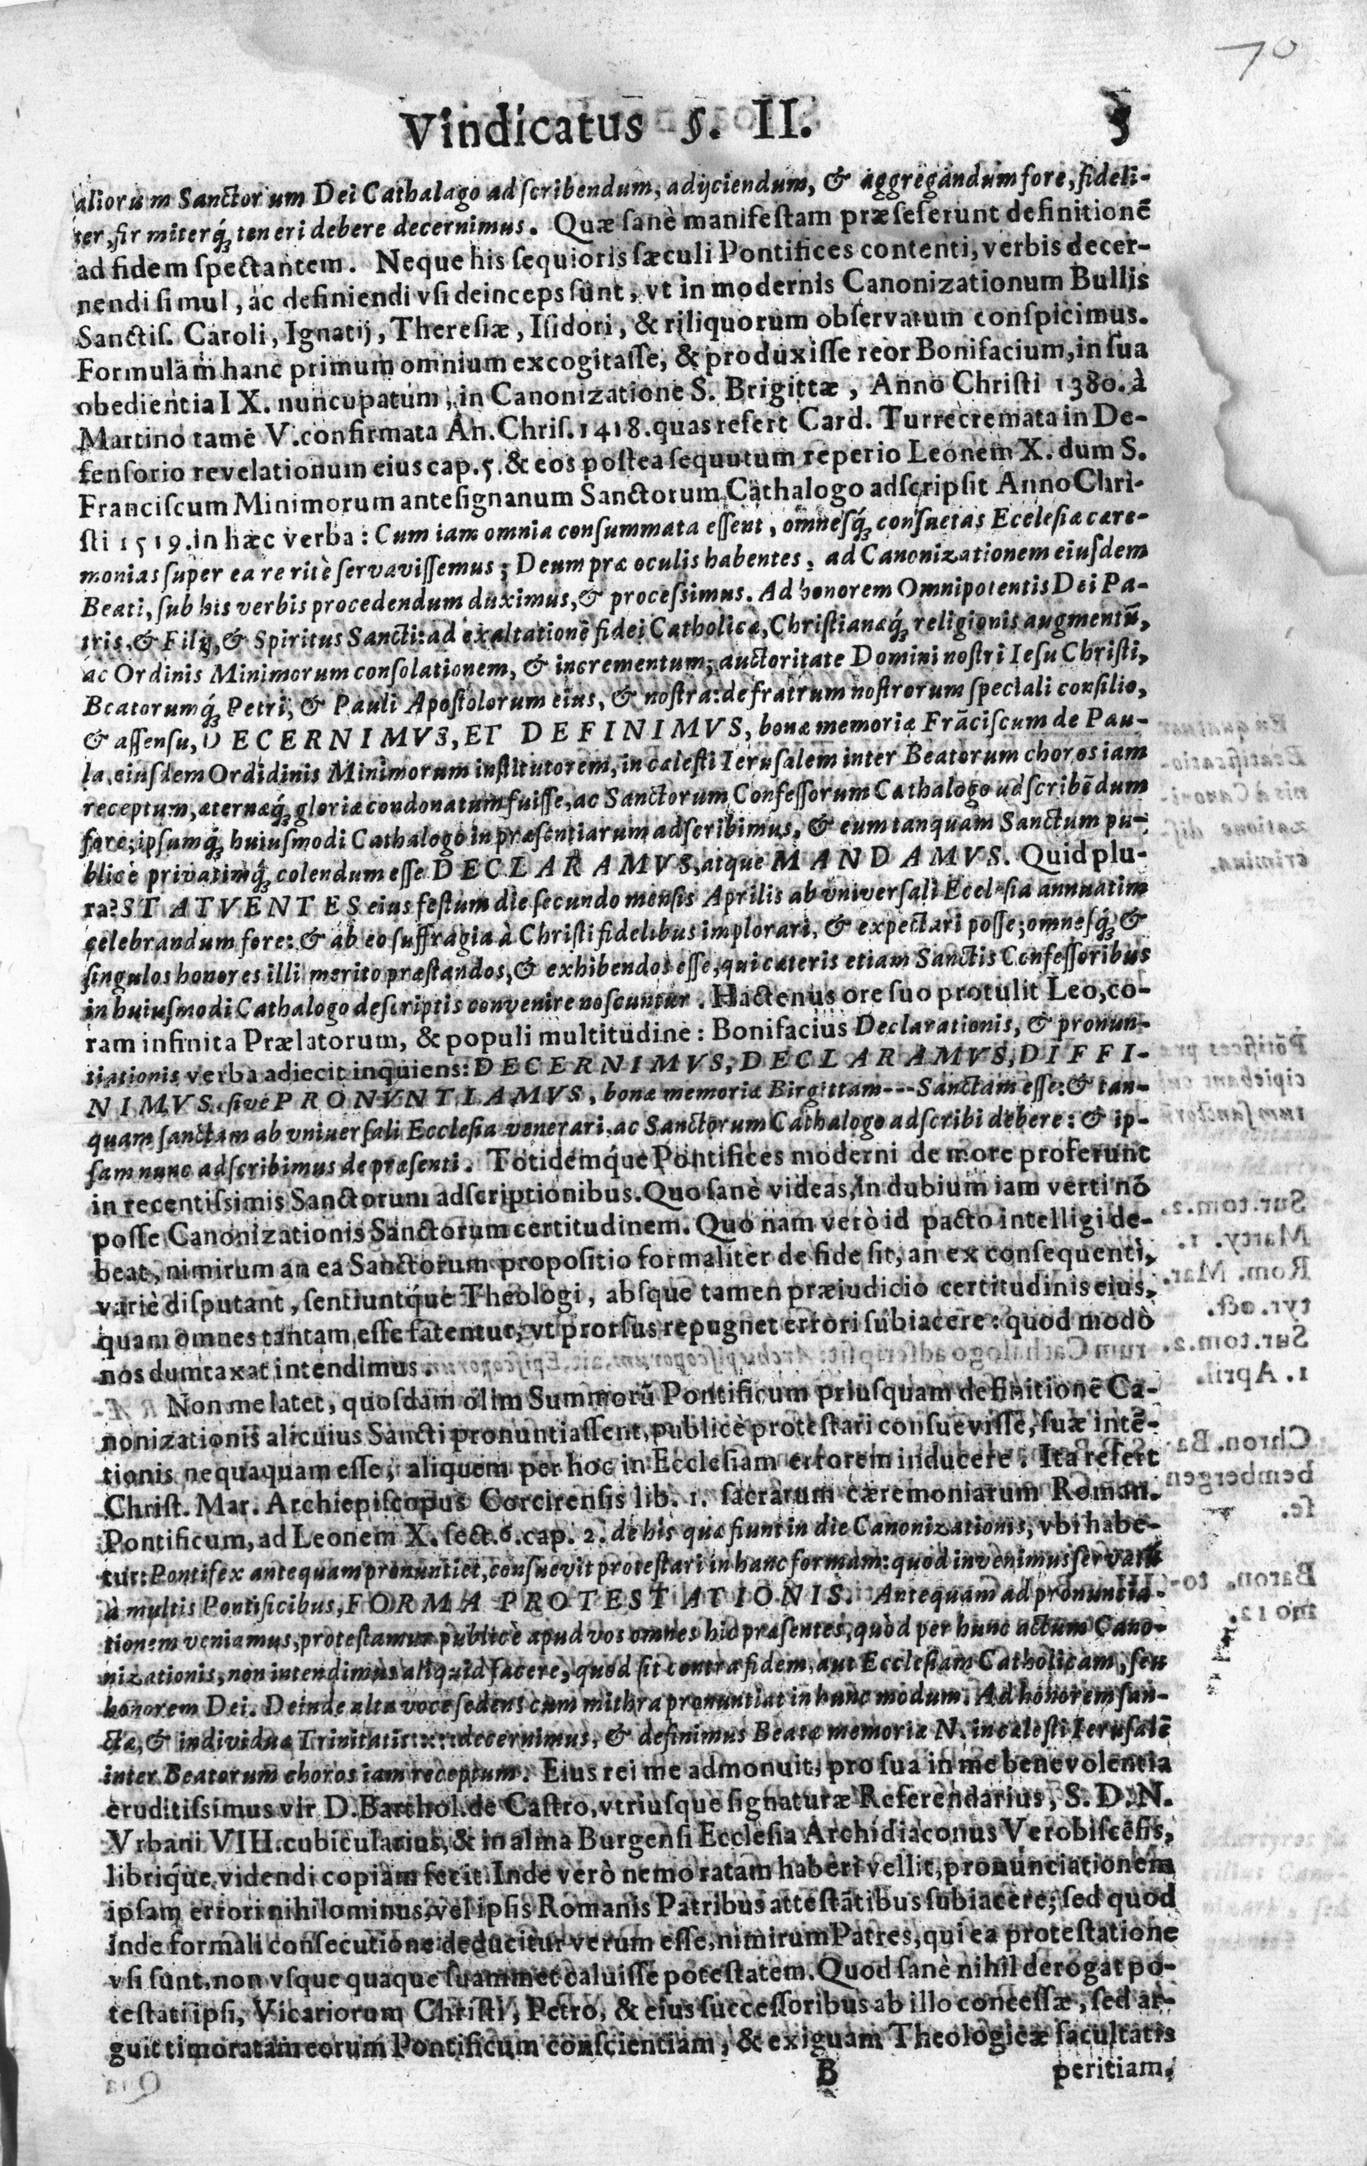 70
Vindicatus §. II. 5
aliorum Sanctorum Dei Cathalago adscribendum, adijciendum, & aggregandum fore, fideli-
ter, firmiterq́ʒ teneri debere decernimus. Quæ sanè manifestam præ seferunt definitionē
ad fidem spectantem. Neque his sequioris sæculi Pontifices contenti, verbis decer-
nendi simul, ac definiendi vsi deinceps sunt, vt in modernis Canonizationum Bullis
Sanctis. Caroli, Ignatij, Theresiæ, Isidori, & riliquorum observatum conspicimus.
Formulam hanc primum omnium excogitasse, & produxisse reor Bonifacium, in sua
obedientia IX. nuncupatum, in Canonizatione S. Brigittæ, Anno Christi 1380. à
Martino tamē V. confirmata An. Chris. 1418. quas refert Card. Turrecremata in De-
fensorio revelationum eius cap. 5. & eos postea sequutum reperio Leonem X. dum S.
Franciscum Minimorum antesignanum Sanctorum Cathalogo adscripsit Anno Chri-
sti 1519. in hæc verba: Cum iam omnia consummata essent, omnesq́ʒ consuetas Ecclesiæ cære-
monias super ea re ritè servavissemus; Deum præ oculis habentes, ad Canonizationem eiusdem
Beati, sub his verbis procedendum duximus, & processimus. Ad honorem Omnipotentis Dei Pa-
tris, & Filij, & Spiritus Sancti: ad exaltationē fidei Catholicæ, Christianæq́ʒ religionis augmentū,
ac Ordinis Minimorum consolationem, & incrementum; auctoritate Domini nostri Iesu Christi,
Beatorumq́ʒ Petri, & Pauli Apostolorum eius, & nostra: de fratrum nostrorum speciali consilio,
& assensu, DECERNIMVS, ET DEFINIMVS, bonæ memoriæ Frāciscum de Pau-
la, eiusdem Ordidinis Minimorum institutorem, in cælesti Ierusalem inter Beatorum choros iam
receptum, æternæq́ʒ gloriæ condonatum fuisse, ac Sanctorum Confessorum Cathalogo adscribēdum
fore; ipsumq́ʒ huiusmodi Cathalogo in præsentiarum adscribimus, & eum tanquam Sanctum pu-
blicè privatimq́ʒ colendum esse DECLARAMVS, atque MANDAMVS. Quid plu-
ra? STATVENTES eius festum die secundo mensis Aprilis ab vniversali Ecclesia annuatim
celebrandum fore: & ab eo suffragia à Christi fidelibus implorari, & expectari posse; omnesq́ʒ &
singulos honores illi merito præstandos, & exhibendos esse, qui cæteris etiam Sanctis Confessoribus
in huiusmodi Cathalogo descriptis convenire noscuntur. Hactenus ore suo protulit Leo, co-
ram infinita Prælatorum, & populi multitudine: Bonifacius Declarationis, & pronun-
tiationis verba adiecit inquiens: DECERNIMVS, DECLARAMVS, DIFFI-
NIMVS, sive PRONVNTIAMVS, bonæ memoriæ Birgittam---Sanctam esse: & tan-
quam sanctam ab vniuersali Ecclesia venerari, ac Sanctorum Cathalogo adscribi debere: & ip-
sam nunc adscribimus de præsenti. Totidemq́ue Pontifices moderni de more proferunt
in recentissimis Sanctorum adscriptionibus. Quo sanè videas, in dubium iam verti nō
posse Canonizationis Sanctorum certitudinem. Quo nam verò id pacto intelligi de-
beat, nimirum an ea Sanctorum propositio formaliter de fide sit, an ex consequenti,
variè disputant, sentiuntq́ue Theologi, absque tamen præiudicio certitudinis eius,
quam omnes tantam esse fatentur, vt prorsus repugnet errori subiacere: quod modò
nos dumtaxat intendimus.
Non me latet, quosdam olim Summorū Pontificum priusquam definitionē Ca-
nonizationis alicuius Sancti pronuntiassent, publicè protestari consuevisse, suæ intē-
tionis nequaquam esse, aliquem per hoc in Ecclesiam errorem inducere. Ita refert
Christ. Mar. Archiepiscopus Corcirensis lib. 1. sacrarum cæremoniarum Roman.
Pontificum, ad Leonem X. sect. 6. cap. 2. de his quæ fiunt in die Canonizationis, vbi habe-
tur: Pontifex antequam pronuntiet, consuevit protestari in hanc formam: quod invenimus servatū
à multis Pontificibus, FORMA PROTESTATIONIS. Antequam ad pronuntia-
tionem veniamus, protestamur publicè apud vos omnes hic præsentes, quòd per hunc actum Cano-
nizationis, non intendimus aliquid facere, quod sit contra fidem, aut Ecclesiam Catholicam, seu
honorem Dei. Deinde alta voce sedens cum mithra pronuntiat in hunc modum. Ad honorem san-
ctæ, & individuæ Trinitatis::x::decernimus, & definimus Beatæ memoriæ N. in cælesti Ierusalē
inter Beatorum choros iam receptum. Eius rei me admonuit, pro sua in me benevolentia
eruditissimus vir D. Barthol. de Castro, vtriusque signaturæ Referendarius, S. D. N.
Vrbani VIII. cubicularius, & in alma Burgensi Ecclesia Archidiaconus Verobiscēsis,
librique videndi copiam fecit. Inde verò nemo ratam haberi vellit, pronunciationem
ipsam errori nihilominus, vel ipsis Romanis Patribus attestātibus subiacere; sed quod
inde formali consecutione deducitur verum esse, nimirum Patres, qui ea protestatione
vsi sunt, non vsque quaque suammet caluisse potestatem. Quod sanè nihil derogat po-
testati ipsi, Vicariorum Christi, Petro, & eius successoribus ab illo concessæ, sed ar-
guit timoratam eorum Pontificum conscientiam, & exiguam Theologicæ facultatis
B peritiam.